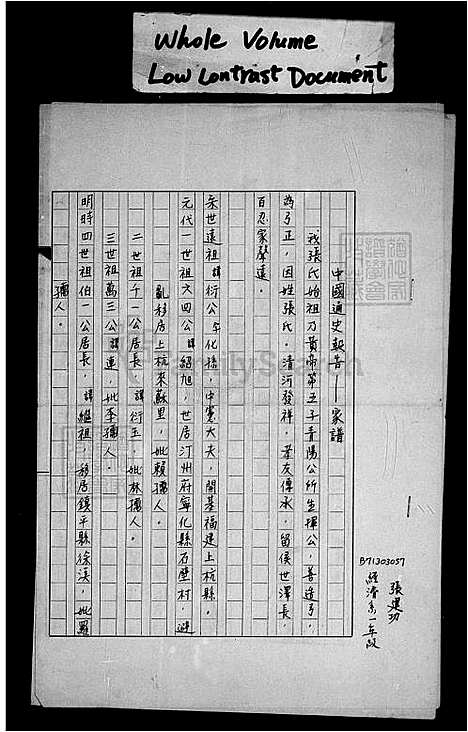 Whole Volume
Low Contrast Document
B71303057
張建功
經濟系一年級
中國通史報告——家譜
我張氏始祖乃黃帝第五子青陽公所生揮公,善造弓,
為弓正,因姓張氏。清河發祥,孝友傳承,留侯世澤長,
百忍家聲遠。
宋世遠祖諱衍公字化孫,中憲大夫,開基福建上杭縣。
元代一世祖六四公諱紹旭,世居汀州府寧化縣石壁村,避
亂移居上杭來蘇里,妣賴孺人。
二世祖千一公居長,諱衍玉,妣林孺人。
三世祖萬三公諱連,妣李孺人。
明時四世祖伯一公居長,諱繼祖,移居鎮平縣徐溪,妣羅
孺人。
FamilySearch